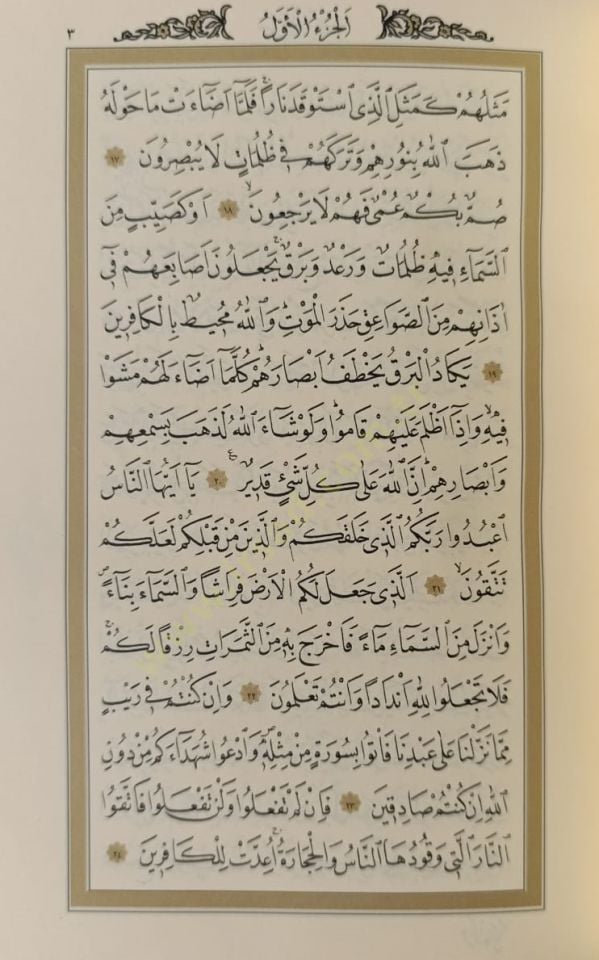 ٣
اَلْجُزْءُ الْاَوَّلُ
مَثَلُهُمْ كَمَثَلِ الَّذِى اسْتَوْقَدَ نَارًاۚ فَلَمَّٓا اَضَٓاءَتْ مَا حَوْلَهُ
ذَهَبَ اللّٰهُ بِنُورِهِمْ وَتَرَكَهُمْ فٖى ظُلُمَاتٍ لَا يُبْصِرُونَ ١٧
صُمٌّ بُكْمٌ عُمْىٌ فَهُمْ لَا يَرْجِعُونَۙ ١٨ اَوْ كَصَيِّبٍ مِنَ
السَّمَٓاءِ فٖيهِ ظُلُمَاتٌ وَرَعْدٌ وَبَرْقٌۚ يَجْعَلُونَ اَصَابِعَهُمْ فٖٓى
اٰذَانِهِمْ مِنَ الصَّوَاعِقِ حَذَرَ الْمَوْتِؕ وَاللّٰهُ مُحٖيطٌ بِالْكَافِرٖينَ
١٩ يَكَادُ الْبَرْقُ يَخْطَفُ اَبْصَارَهُمْؕ كُلَّمَٓا اَضَٓاءَ لَهُمْ مَشَوْا
فٖيهِۙ وَاِذَٓا اَظْلَمَ عَلَيْهِمْ قَامُواؕ وَلَوْ شَٓاءَ اللّٰهُ لَذَهَبَ بِسَمْعِهِمْ
وَاَبْصَارِهِمْؕ اِنَّ اللّٰهَ عَلٰى كُلِّ شَىْءٍ قَدٖيرٌ ع ٢٠ يَٓا اَيُّهَا النَّاسُ
اعْبُدُوا رَبَّكُمُ الَّذٖى خَلَقَكُمْ وَالَّذٖينَ مِنْ قَبْلِكُمْ لَعَلَّكُمْ
تَتَّقُونَۙ ٢١ اَلَّذٖى جَعَلَ لَكُمُ الْاَرْضَ فِرَاشًا وَالسَّمَٓاءَ بِنَٓاءًࣕ
وَاَنْزَلَ مِنَ السَّمَٓاءِ مَٓاءً فَاَخْرَجَ بِهٖ مِنَ الثَّمَرَاتِ رِزْقًا لَكُمْۚ
فَلَا تَجْعَلُوا لِلّٰهِ اَنْدَادًا وَاَنْتُمْ تَعْلَمُونَ ٢٢ وَاِنْ كُنْتُمْ فٖى رَيْبٍ
مِمَّا نَزَّلْنَا عَلٰى عَبْدِنَا فَاْتُوا بِسُورَةٍ مِنْ مِثْلِهٖࣕ وَادْعُوا شُهَدَٓاءَكُمْ مِنْ دُونِ
اللّٰهِ اِنْ كُنْتُمْ صَادِقٖينَ ٢٣ فَاِنْ لَمْ تَفْعَلُوا وَلَنْ تَفْعَلُوا فَاتَّقُوا
النَّارَ الَّتٖى وَقُودُهَا النَّاسُ وَالْحِجَارَةُۚ اُعِدَّتْ لِلْكَافِرٖينَ ٢٤